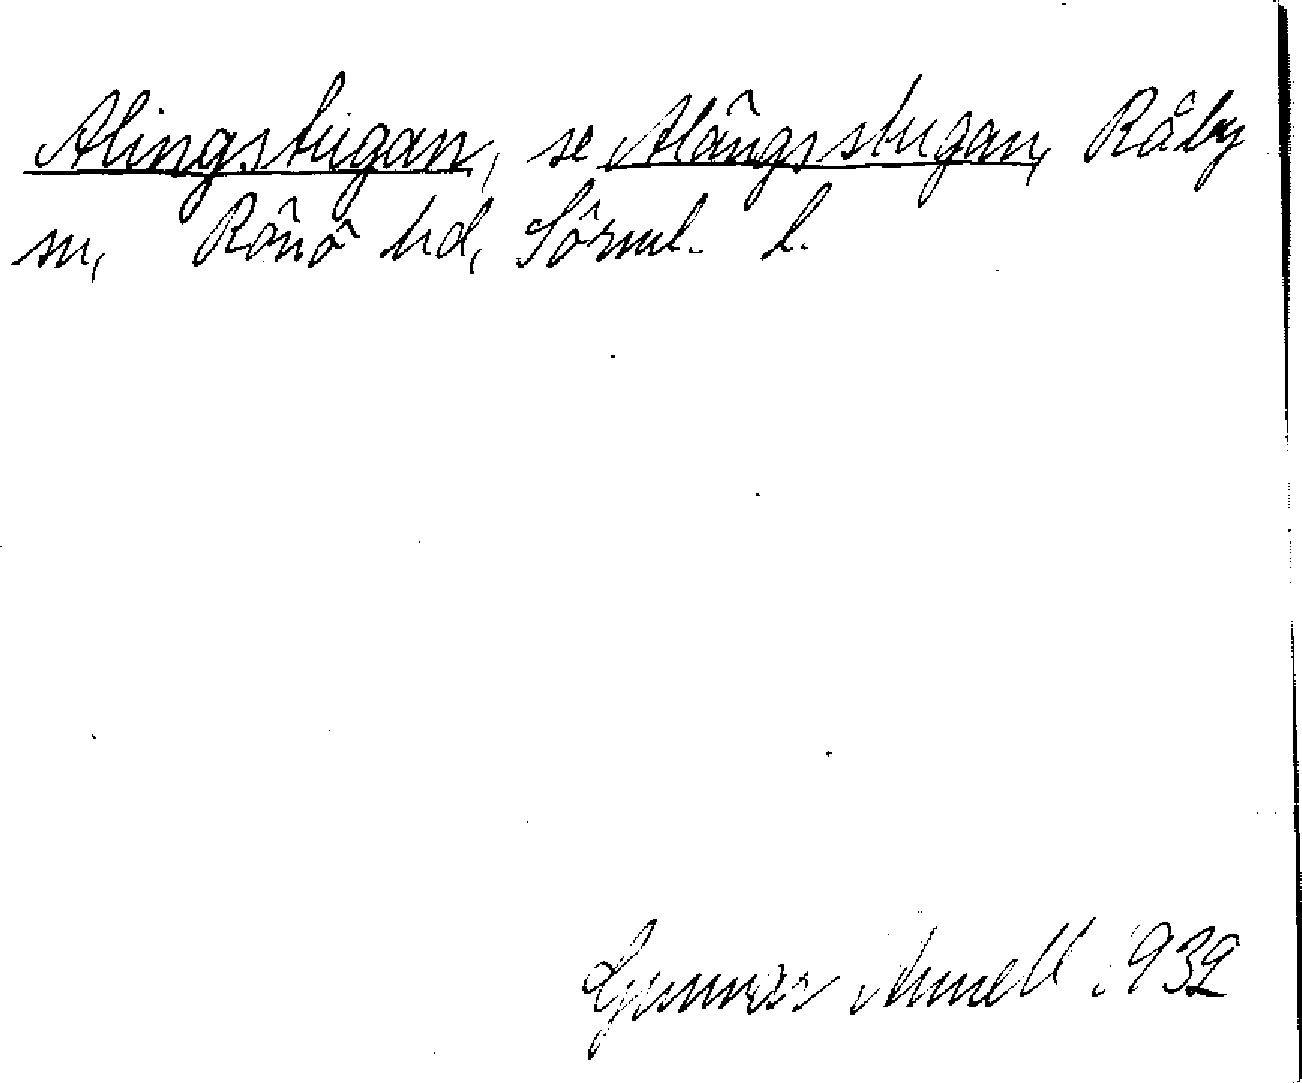 Alingstugan, se Alängsstugan, Råby
sn, Rönö hd, Sörml. l.
Gunnar Annell 1932